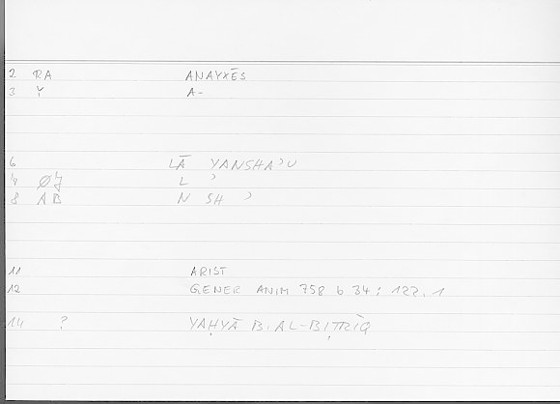 2 RA ANAYXĒS
3 Y A-
6 LĀ YANSHAʾU
4 ØJ L ʾ
8 AB N SH ʾ
11 ARIST
12 GENER ANIM 758 b 34; 122.1
14 ? YAḤYĀ B. AL-BIṬRĪQ